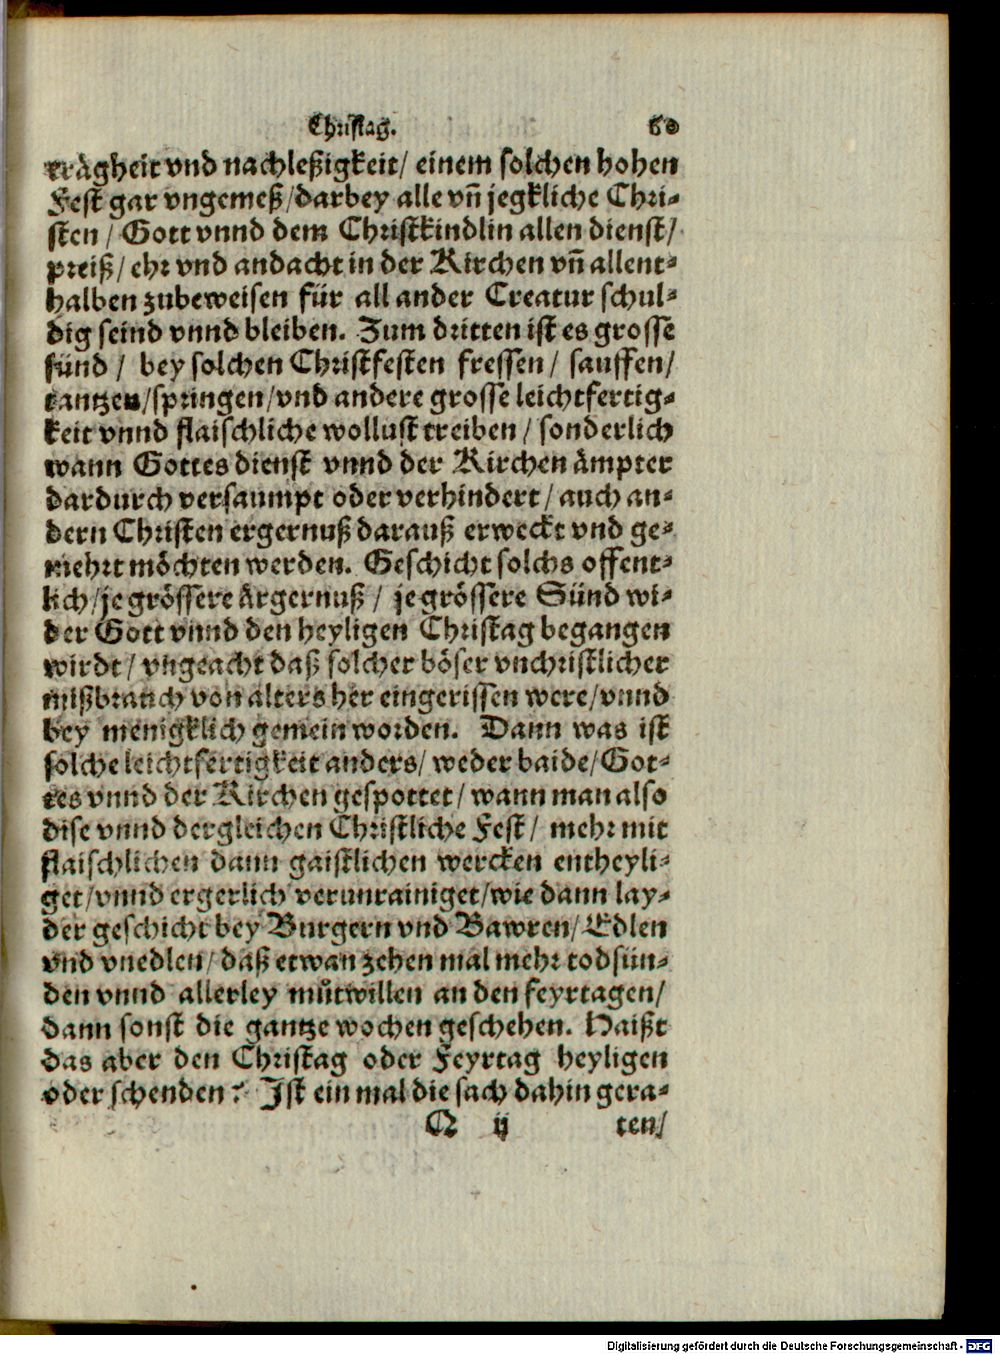 Christag. 60
trägheit vnd nachleßigkeit/ einem solchen hohen
Fest gar vngemeß/darbey alle vñ jegkliche Chri-
sten/ Gott vnnd dem Christkindlin allen dienst/
preiß/ ehr vnd andacht in der Kirchen vñ allent-
halben zubeweisen für all ander Creatur schul-
dig seind vnnd bleiben. Zum dritten ist es grosse
sünd/ bey solchen Christfesten fressen/ sauffen/
tantzen/springen/vnd andere grosse leichtfertig-
keit vnnd flaischliche wollust treiben/ sonderlich
wann Gottes dienst vnnd der Kirchen ämpter
dardurch versaumpt oder verhindert/ auch an-
dern Christen ergernuß darauß erweckt vnd ge-
mehrt möchten werden. Geschicht solchs offent-
lich/je grössere ärgernuß/ je grössere Sünd wi-
der Gott vnnd den heyligen Christag begangen
wirdt/ vngeacht daß solcher böser vnchristlicher
mißbrauch von alters her eingerissen were/vnnd
bey menigklich gemein worden. Dann was ist
solche leichtfertigkeit anders/ weder baide/Got-
tes vnnd der Kirchen gespottet/ wann man also
dise vnnd dergleichen Christliche Fest/ mehr mit
flaischlichen dann gaistlichen wercken entheyli-
get/vnnd ergerlich verunrainiget/wie dann lay-
der geschicht bey Burgern vnd Bawren/ Edlen
vnd vnedlen/ daß etwan zehen mal mehr todsün-
den vnnd allerley můtwillen an den feyrtagen/
dann sonst die gantze wochen geschehen. Haißt
das aber den Christag oder Feyrtag heyligen
oder schenden? Ist ein mal die sach dahin gera-
Q ij ten/
Digitalisierung gefördert durch die Deutsche Forschungsgemeinschaft - DFG